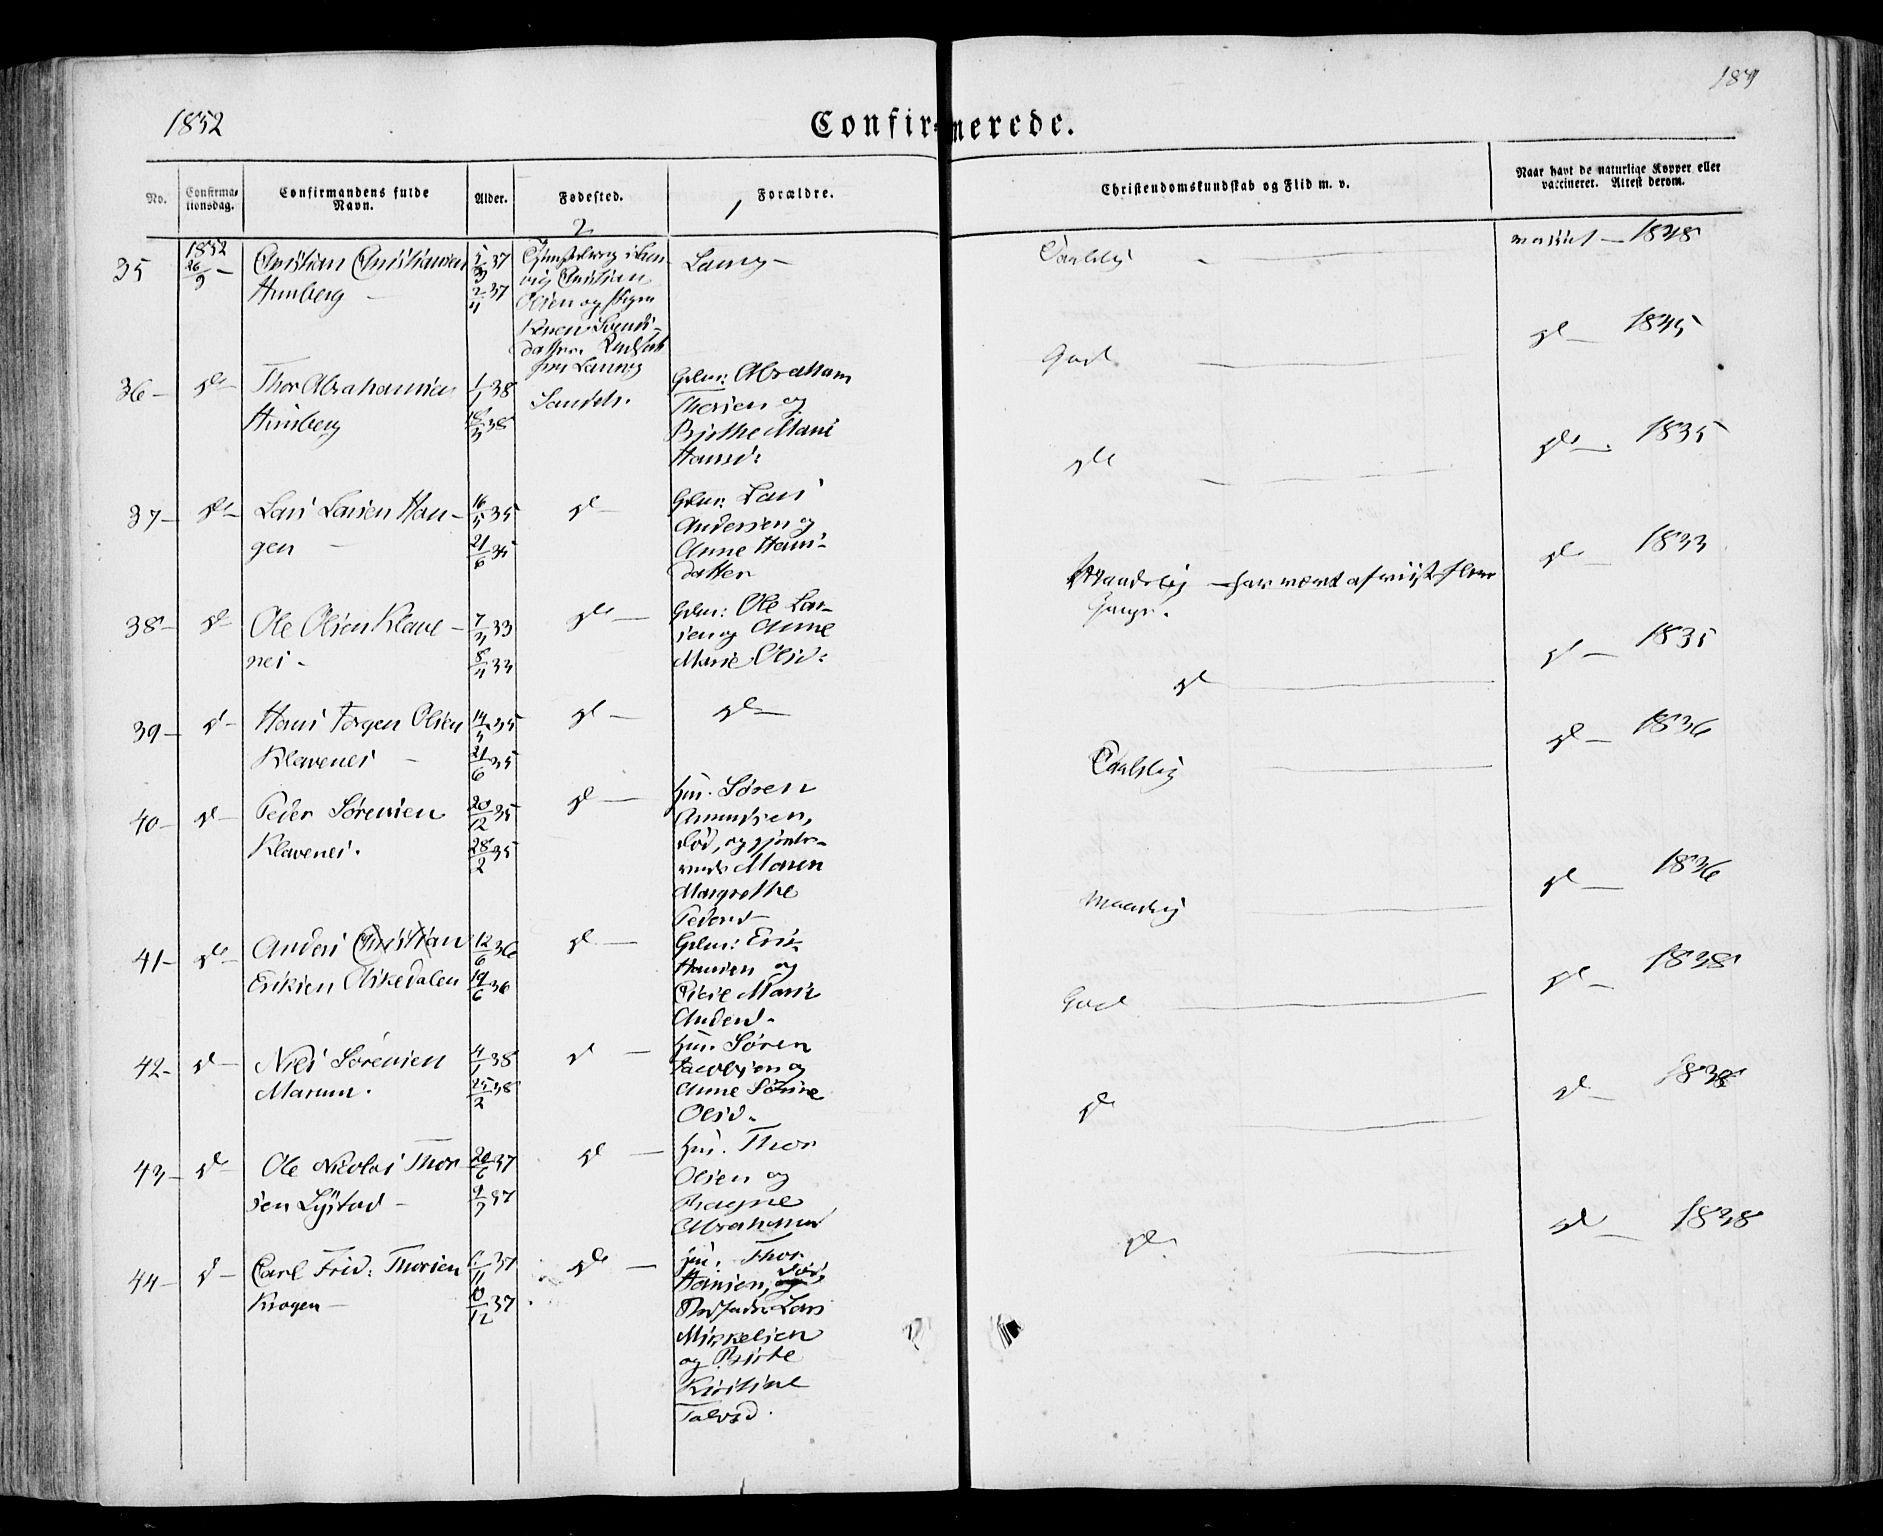 184
1852
Confirmerede.
No.
Confirma-
tionsdag.
Confirmandens fulde
Navn.
Alder.
Fødested.
Forældre.
Christendomskundskab og Flid m. v.
Naar havt de naturlige Kopper eller
vaccineret. Attest derom.
2
1
35
1852
26/9 —
Christian Christiansen
Himberg —
2/4 37
Christian
Olsen og
datter.
Laurv —
Taalelig —
1838
36 —
do
Thor Abrahamsen
Himberg
1/1 38
Sandeh.
Gdm: Abraham
Thorsen og
Birthe Marie
Hansd:
Godt
do 1845
37 —
do —
Lars Larsen Hau-
gen —
16/5 35
21/6 35
do —
Gdm. Lars
Andersen og
Anne Hans-
datter
do
do — 1835
38 —
do
Ole Olsen Klave-
nes —
7/3 33
8/4 33
do —
Gdm: Ole Lar-
sen og Anne
Marie Olsd:
Maadelig — har været afviist flere
Gange.
do 1833
39 —
do —
Hans Jørgen Olsen
Klavenes —
14/5 35
21/6 35
do —
do —
do
do — 1835
40 —
do —
Peder Sørensen
Klavenes.
20/12 35
28/2 35
do —
Hus. Søren
Amundsen,
død, og
Maren
Margrethe
Pedersd
Taalelig
do — 1836
41 —
do —
Anders Christian
Eriksen Askedalen
12/6 36
19/6 36
do —
Gdm: Erik
Hansen og
Marie
Andersd.
Maadelig
do — 1836
42 —
do —
Niels Sørensen
Marum.
4/1 38
25/2 38
do —
Hus. Søren
Jacobsen og
Anne Sørine
Olsd.
Godt
do — 1838
43 —
do
Ole Nicolai Thor-
sen Lystad —
20/6 37
9/7 37
do —
Hus. Thor
Olsen og
Ragne
Abrahamsd
do
do — 1838
44 —
do —
Carl Fred: Thorsen
Krogen —
10/12 37
do —
Hus. Thor
Hansen, død,
Lars
Mikkelsen
og Birte
Kirstine
Talvsd.
do
do — 1838